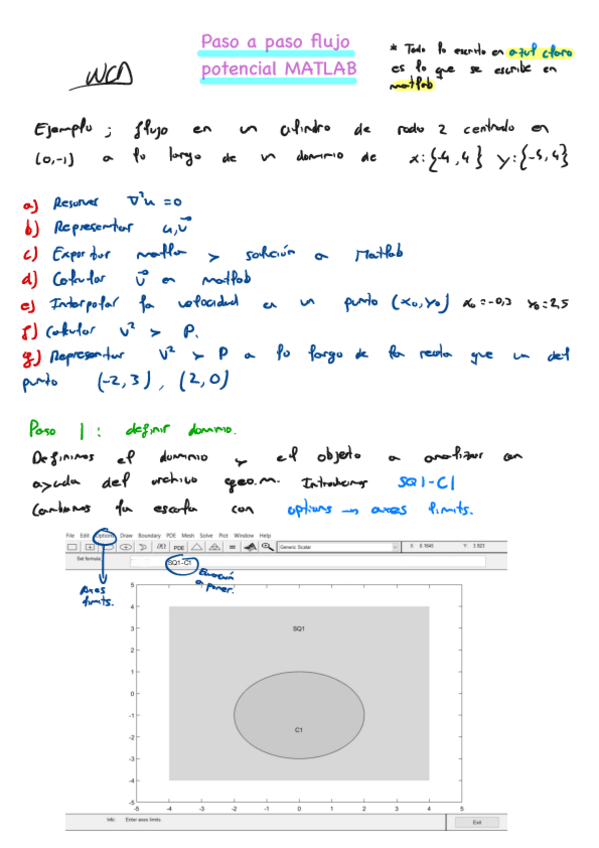 Paso a paso flujo
potencial MATLAB
* Todo lo escrito en azul claro
es lo que se escribe en
matlab
WCD
Ejemplo ; flujo en un cilindro de radio 2 centrado en
(0,-1) a lo largo de un dominio de x:{-4,4} y:{-5,4}
a) Resolver ∇²u = 0
b) Representar u, v⃗
c) Exportar malla y solución a Matlab
d) Calcular v⃗ en matlab
e) Interpolar la velocidad en un punto (x₀,y₀) x₀=-0,3 y₀=2,5
f) Calcular v² y P.
g) Representar v² y P a lo largo de la recta que un del
punto (-2,3), (2,0)
Paso 1: definir dominio.
Definimos el dominio y el objeto a analizar con
ayuda del archivo geo.m. Introducimos SQ1-C1
Cambiamos la escala con options → axes limits.
File Edit Options Draw Boundary PDE Mesh Solve Plot Window Help
PDE = Generic Scalar X: 0.1645 Y: 3.923
Set formula: SQ1-C1
Axes
limits.
Ecuación
a poner.
5
4
3
2
1
0
-1
-2
-3
-4
-5
SQ1
C1
-5 -4 -3 -2 -1 0 1 2 3 4 5
Info: Enter axes limits. Exit